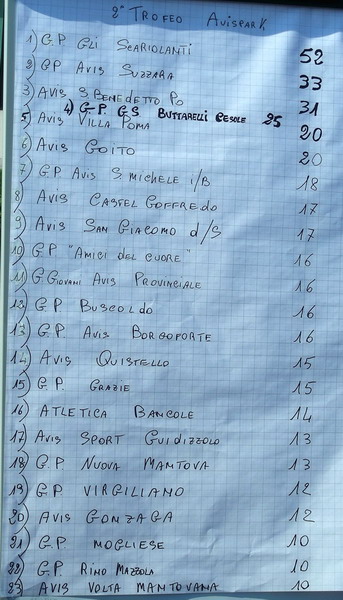 2° TROFEO AVISPARK
1) G.P. GLI SCARIOLANTI 52
2) GP AVIS SUZZARA 33
3) AVIS S.BENEDETTO PO 31
4) G.P. GS BUTTARELLI CESOLE 25
5) AVIS VILLA POMA 20
6) AVIS GOITO 20
7) G.P. AVIS S.MICHELE i/B 18
8) AVIS CASTEL GOFFREDO 17
9) AVIS SAN GIACOMO d/S 17
10) GP "AMICI DEL CUORE" 16
11) G GIOVANI AVIS PROVINCIALE 16
12) G.P. BUSCOLDO 16
13) G.P. AVIS BORGOFORTE 16
14) AVIS QUISTELLO 15
15) G.P. GRAZIE 15
16) ATLETICA BANCOLE 14
17) AVIS SPORT GUIDIZZOLO 13
18) G.P. NUOVA MANTOVA 13
19) G.P. VIRGILIANO 12
20) AVIS GONZAGA 12
21) G.P. MOGLIESE 10
22) G.P RINO MAZZOLA 10
23) AVIS VOLTA MANTOVANA 10